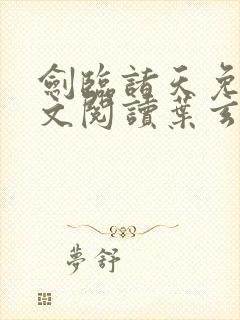 劍臨諸天免
文閱讀葉玄
夢舒